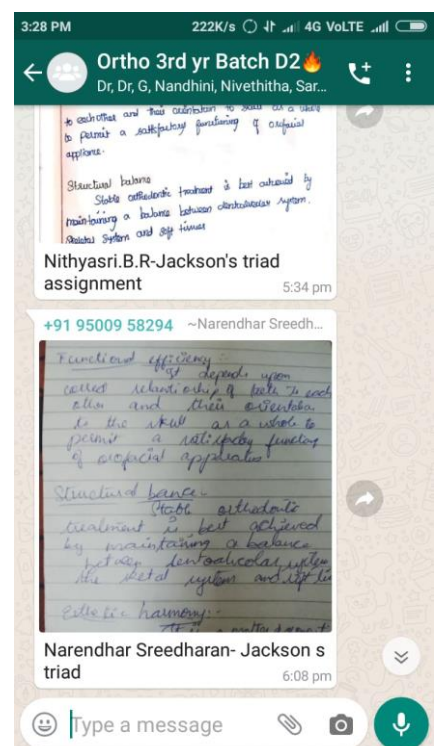 3:28 PM 222K/s 4G VoLTE
Ortho 3rd yr Batch D2🔥
Dr, Dr, G, Nandhini, Nivethitha, Sar...
to each other and their orientation to skull as a whole
to permit a satisfactory functioning of orofacial
appliance.
Structural balance
Stable orthodontic treatment is best achieved by
maintaining a balance between dentoalveolar system.
skeletal system and soft tissues
Nithyasri.B.R-Jackson's triad
assignment
5:34 pm
+91 95009 58294 ~Narendhar Sreedh...
Functional efficiency :-
It depends upon
correct relationship of teeth to each
other and their orientation
to the skull as a whole to
permit a satisfactory
of orofacial apparatus
Structural bance.
Stable orthodontic
treatment is best achieved
by maintaining a balance
between dentoalveolar system
the system and
Esthetic harmony:-
Narendhar Sreedharan- Jackson s
triad
6:08 pm
Type a message